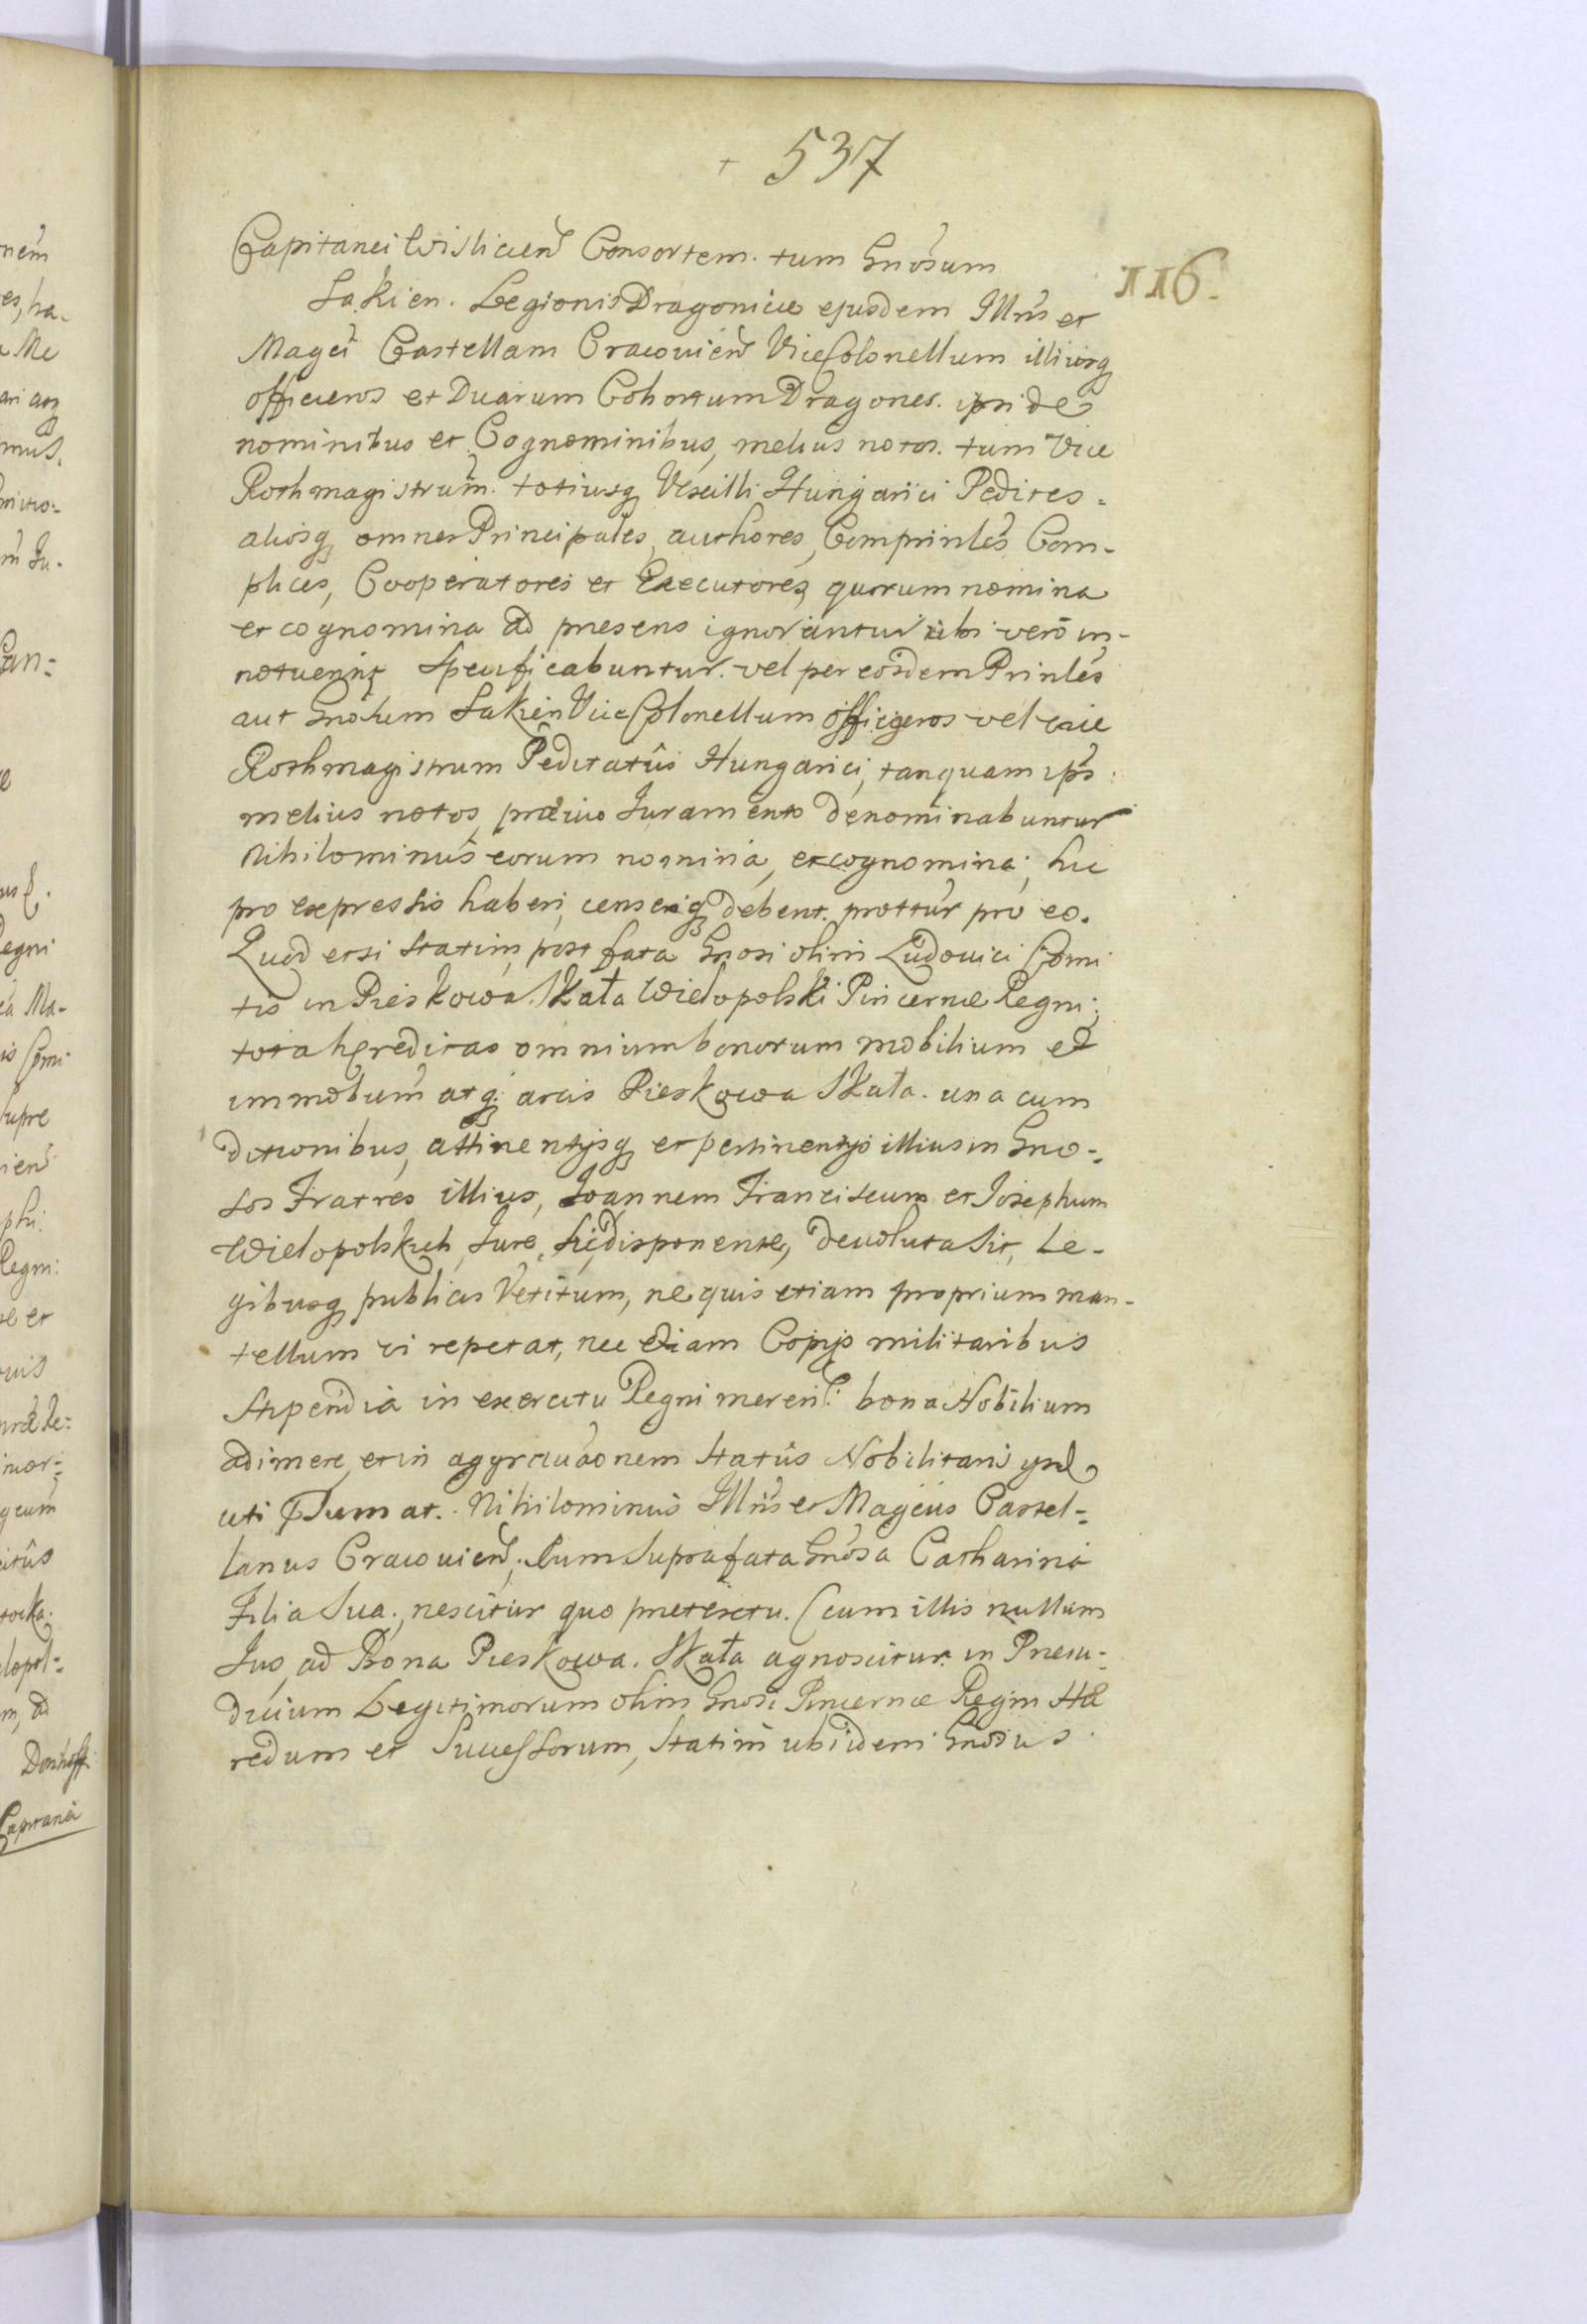 537
116.
Capitanei Wislicien Consortem. tum Gnosum
Sakien. Legionis Dragonicæ ejusdem Illris et
Magci Castellani Cracovien ViceColonellum illiusq
officieros et Duarum Cohortum Dragones. ipsi de
nominibus et Cognominibus, melius notos. tum Vice
Rothmagistrum. totiusq Vexilli Hungarici Pedites.
aliosq omnes Principales, authores, Comprinles Com-
plices, Cooperatores et Executores, quorum nomina
et cognomina ad presens ignorantur ubi vero in-
notuerint specificabuntur. vel per eosdem Prinles
aut Gnosum Sakien ViceColonellum officieros vel vice
Rothmagistrum Peditatûs Hungarici, tanquam ips.
melius notos, prævio Juramento denominabuntur
Nihilominus eorum nomina, et cognomina, hic
pro expressis haberi, censeriq debent. prottur pro eo.
Quod etsi statim, post fata Gnosi olim Ludovici Comi
tis in Pieskowa Skała Wielopolski Pincernæ Regni;
tota hæreditas omnium bonorum mobilium et
immobium atq; arcis Pieskowa Skała. una cum
ditionibus, attinentijsq et pertinentijs illius in Gno-
sos Fratres illius, Joannem Franciscum et Josephum
Wielopolskich, Jure, sic disponente, devoluta sit, Le-
gibusq publicis Vetitum, ne quis etiam proprium man-
tellum vi repetat, nec etiam Copijs militaribus
stipendia in exercitu Regni meren: bona Nobilium
adimere, et in aggravaonem statûs Nobilitaris
uti præsumat. Nihilominus Illris et Magcus Castel-
lanus Cracovien; cum suprafata Gnosa Catharina
Filia sua, nescitur quo prætextu. (cum illis nullum
Jus, ad Bona Pieskowa. Skała agnoscitur. in Præiu-
dicium Legitimorum olim Gnosi Pincernæ Regni Hæ
redum et Successorum, statim ubi idem Gnosus